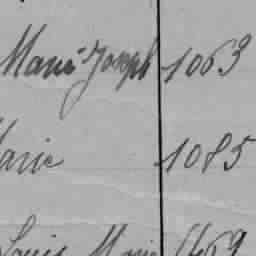 Marie Joseph 1063
Marie 1085
Louis Marie 1469